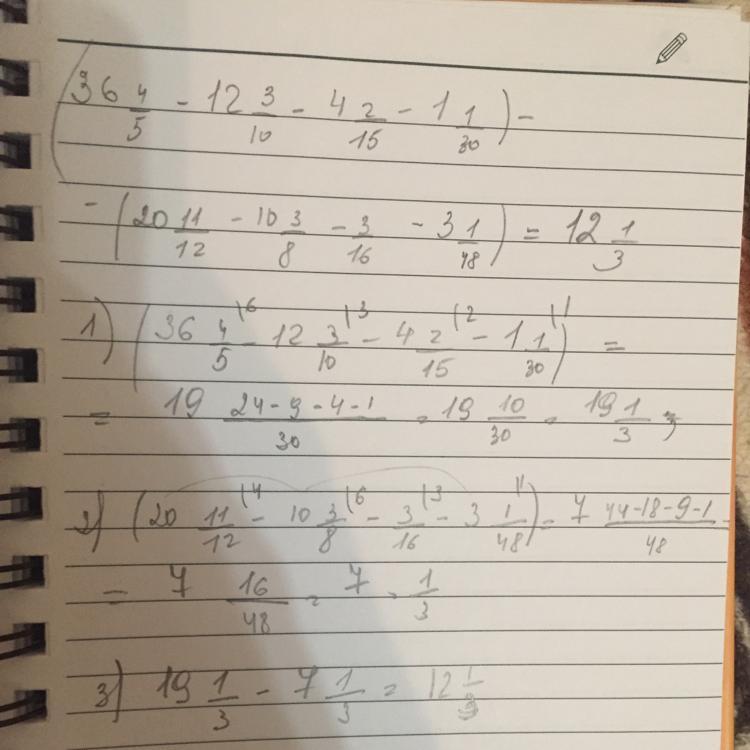 (36 4/5 - 12 3/10 - 4 2/15 - 1 1/30) -
- (20 11/12 - 10 3/8 - 3/16 - 3 1/48) = 12 1/3
1) (36 4/5 |6 - 12 3/10 |3 - 4 2/15 |2 - 1 1/30 |1) =
= 19 (24-9-4-1)/30 = 19 10/30 = 19 1/3 ;
2) (20 11/12 |4 - 10 3/8 |6 - 3/16 |3 - 3 1/48 |1) = 7 (44-18-9-1)/48 =
= 7 16/48 = 7 1/3
3) 19 1/3 - 7 1/3 = 12 1/3